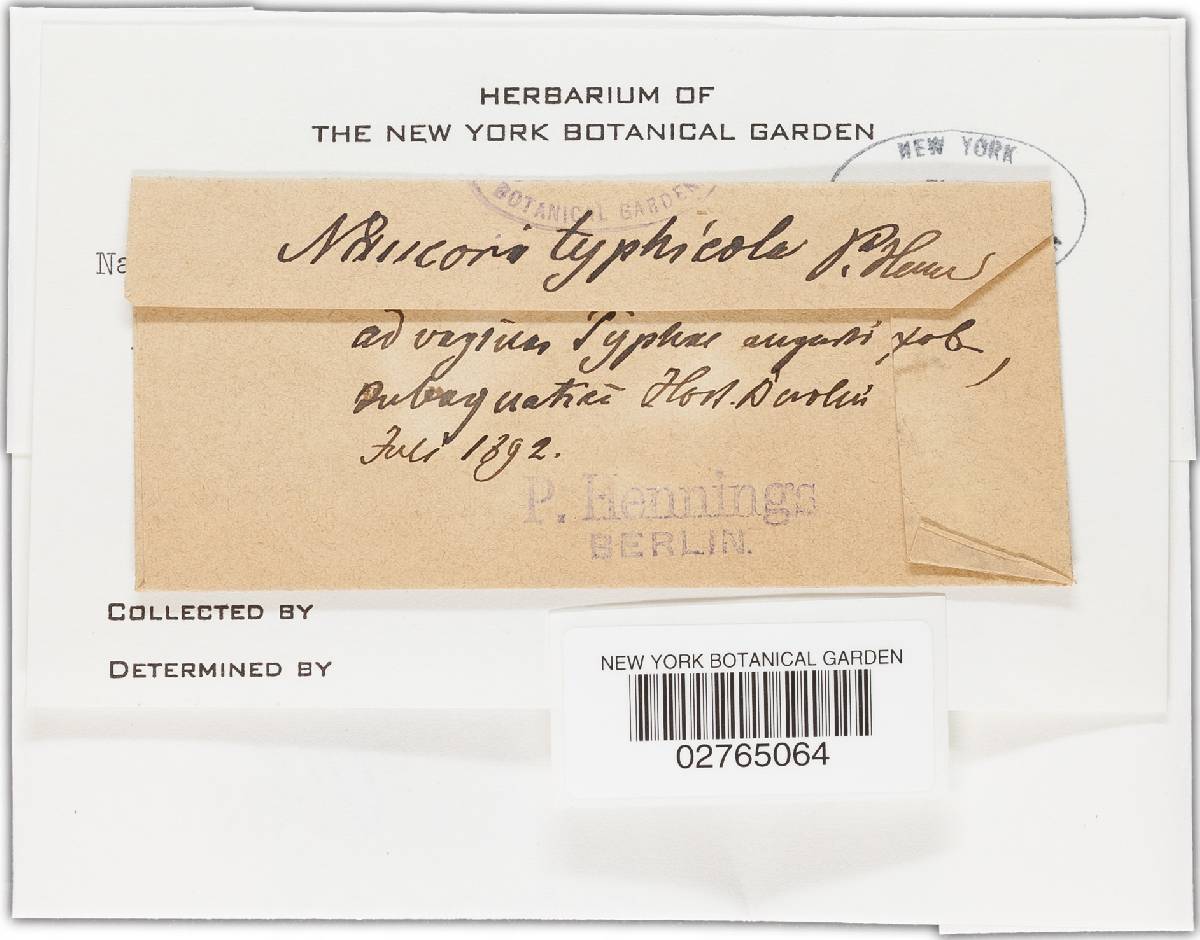 HERBARIUM OF
THE NEW YORK BOTANICAL GARDEN
NEW YORK
BOTANICAL GARDEN
Na
Naucoria typhicola P. Henn
ad vaginas Typhae angusti
subaquatice Hort. Berlin
Juli 1892.
P. Hennings
BERLIN.
COLLECTED BY
DETERMINED BY
NEW YORK BOTANICAL GARDEN
02765064